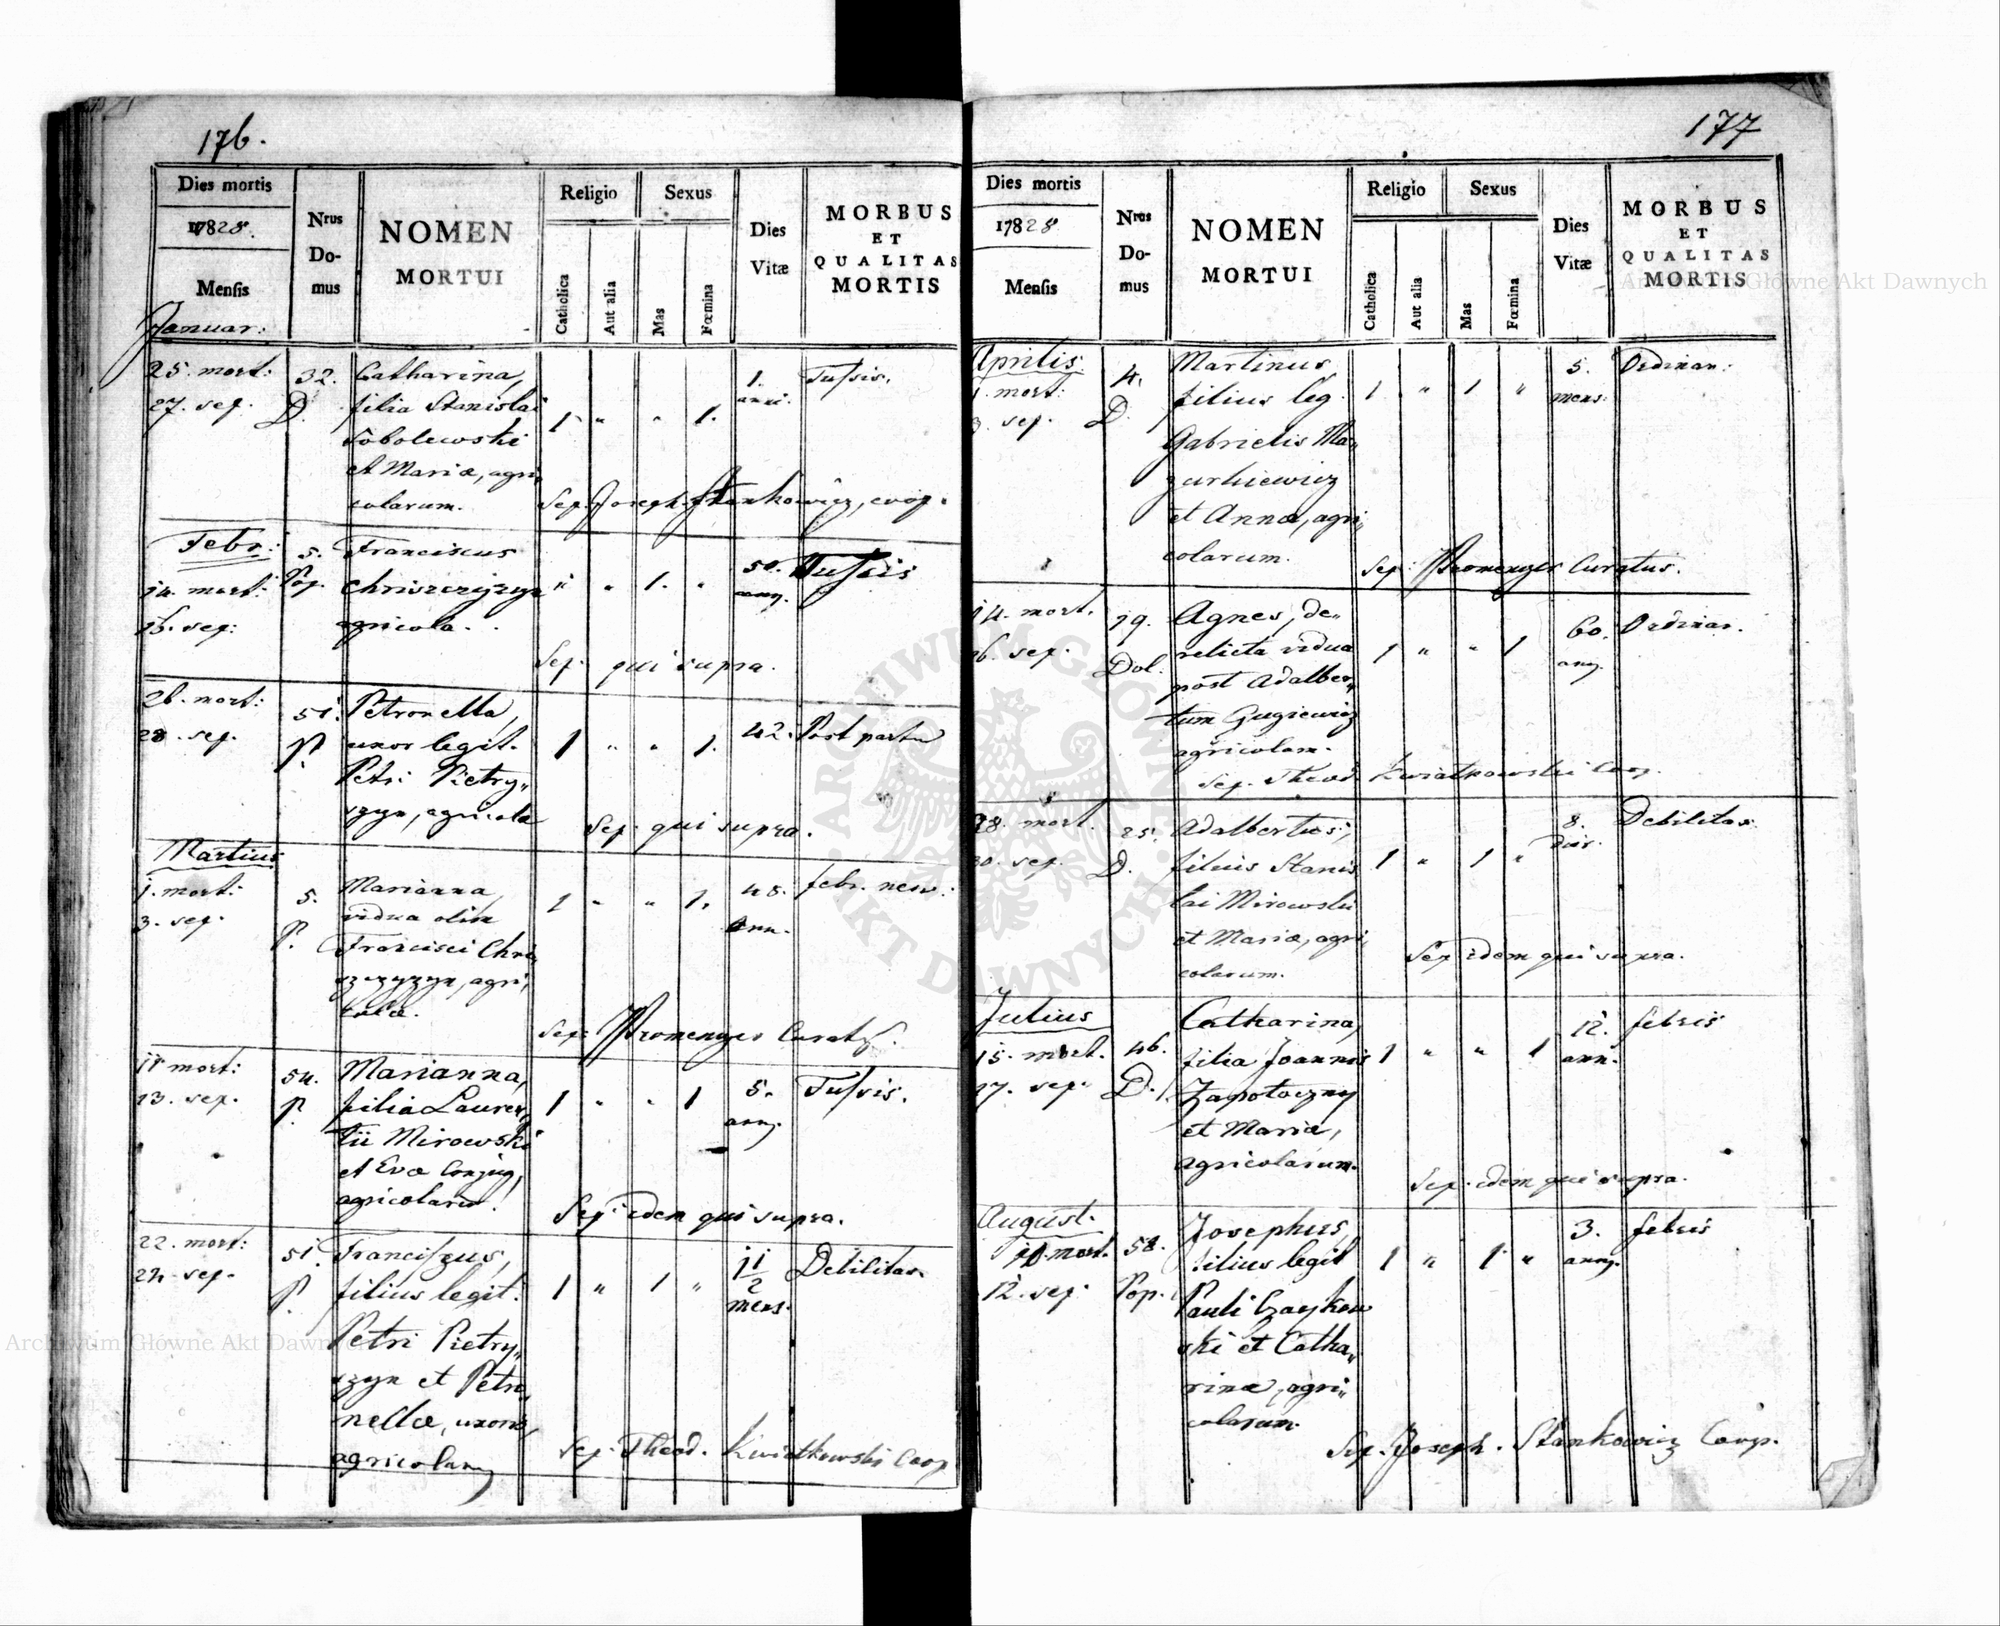 176.
Dies mortis
1828.
Mensis
Nrus
Do-
mus
NOMEN
MORTUI
Religio
Catholica
Aut alia
Sexus
Mas
Fœmina
Dies
Vitæ
MORBUS
ET
QUALITAS
MORTIS
Januar:
25. mort:
27. sep.
32.
D.
Catharina,
filia Stanislai
Sobolewski
et Mariæ, agri
colarum.
1 " " 1.
1.
anni.
Tussis.
Sep. Joseph Stankowicz, coop.
Febr:
14. mort:
16. sep:
5.
Pop.
Franciscus
agricola.
" 1. "
50.
ann.
Tussis
Sep. qui supra.
26. mort:
28. sep.
51.
P.
Petronella,
uxor legit.
Petri Pietry„
szyn, agricolæ
1 " " 1.
42.
Post partu
Sep. qui supra.
Martius
1. mort:
3. sep.
5.
P.
Marianna,
vidua olim
Francisci Chri
agri,
colæ.
1 " " 1.
48.
ann.
febr. nerv.
Sep: Promenger Curats.
11 mort:
13. sep.
54.
P.
Marianna,
filia Lauren,
tii Mirowski
et Evæ Conjug,
agricolarum.
1 " " 1
5.
ann.
Tussis.
Sep. idem qui supra.
22. mort:
24. sep.
51.
P.
Franciszus,
filius legit:
Petri Pietry„
szyn et Petro,
nellæ, uxoris,
agricolarum
1 " 1 "
1½
mens.
Debilitas
Sep. Theod. Kwiatkowski Coop
177
Dies mortis
1828
Mensis
Nrus
Do-
mus
NOMEN
MORTUI
Religio
Catholica
Aut alia
Sexus
Mas
Fœmina
Dies
Vitæ
MORBUS
ET
QUALITAS
MORTIS
Aprilis.
1. mort:
3. sep.
4.
D.
Martinus,
filius leg.
Gabrielis Ma„
zurkiewicz
et Annæ, agri,
colarum.
1 " 1 "
5.
mens.
Ordinar:
Sep: Promenger Curatus.
14. mort.
16. sep.
19.
Dol.
Agnes, de„
relicta vidua
post Adalber„
tum Gugiewicz
agricolam.
1 " " 1
60.
ann.
Ordinar.
Sep. Theod. Kwiatkowski Coop.
28. mort.
30. sep.
25.
D.
Adalbertus,
filius Stanis
lai Mirowski
et Mariæ, agri,
colarum.
1 " 1 "
8.
dier.
Debilitas.
Sep idem qui supra.
Julius
15. mort.
17. sep.
46.
D.
Catharina,
filia Joannis
Zapotoczny
et Mariæ,
agricolarum.
1 " " 1
12.
ann.
febris
Sep. idem qui supra.
August.
10. mort.
12. sep.
58.
Pop.
Josephus,
filius legit
Pauli Czaykow
ski et Catha„
rinæ, agri„
colarum.
1 " 1 "
3.
ann.
febris
Sep. Joseph. Stankowicz Coop.
ARCHIWUM GŁÓWNE AKT DAWNYCH
Archiwum Główne Akt Dawnych
Archiwum Główne Akt Dawnych